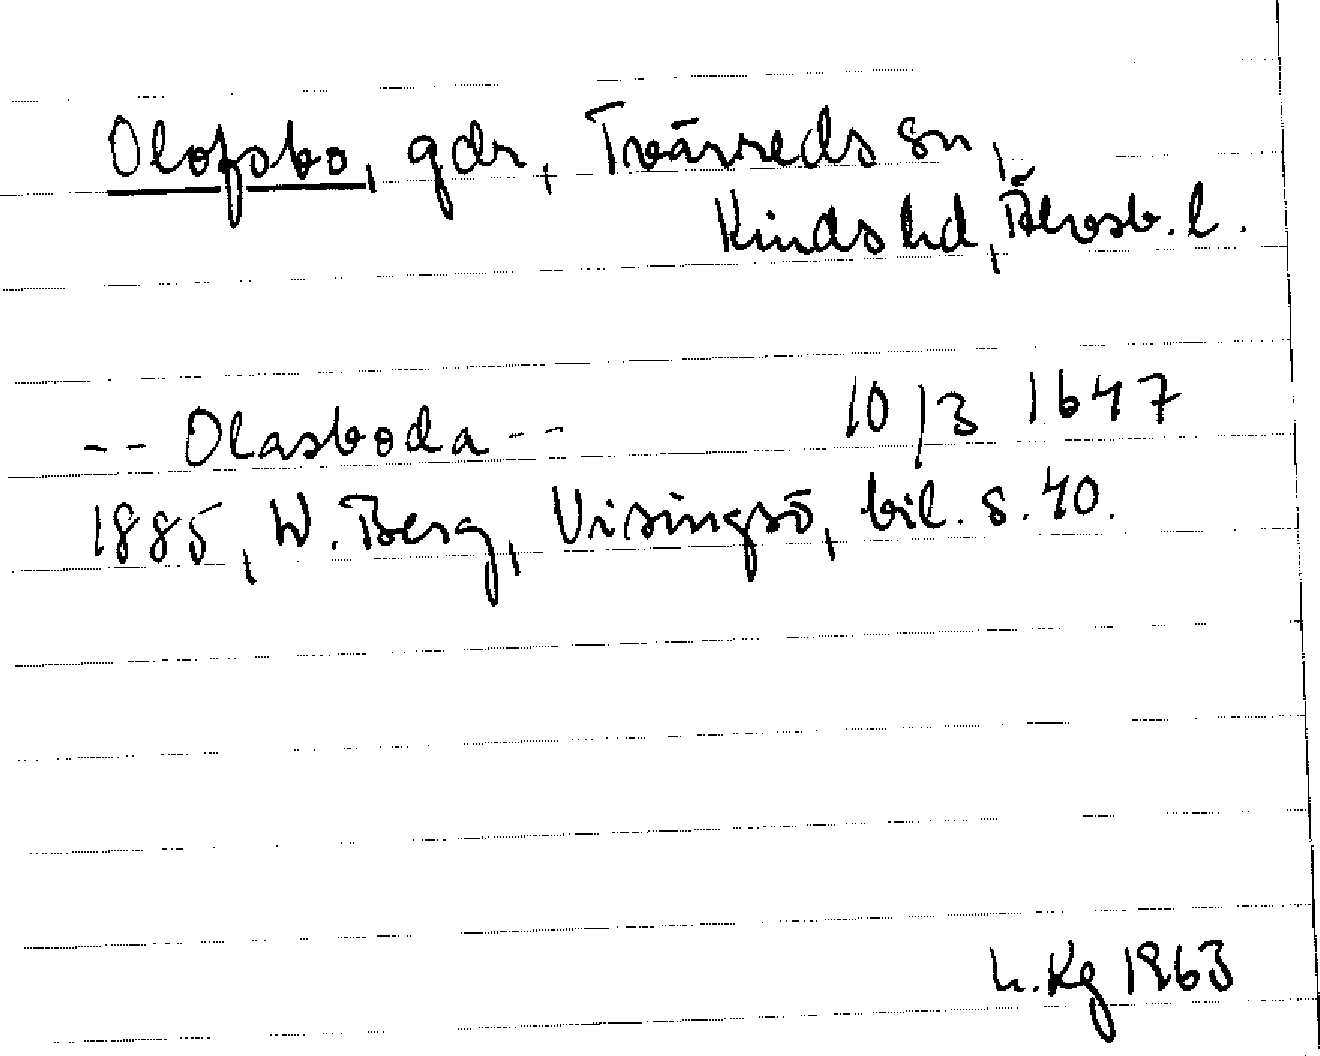 Olofsbo, gdr, Tvärreds sn,
Kinds hd, Älvsb. l.
-- Olasboda -- 10/3 1647
1885, W. Berg, Visingsö, bil. s. 40.
h. Kg 1963